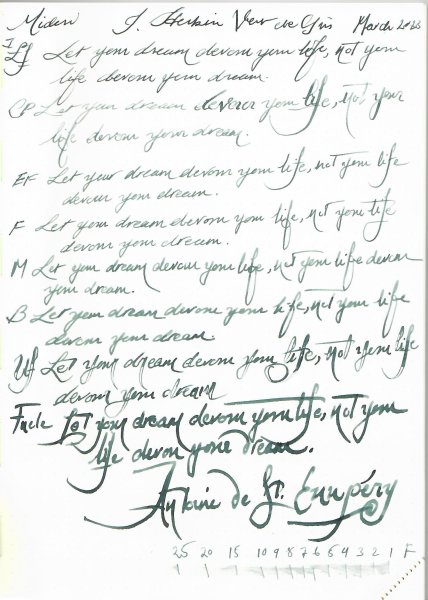 Midori J. Herbin Vert de Gris March 2023
Let your dream devour your life, not your
life devour your dream.
CP Let your dream devour your life, not your
life devour your dream.
EF Let your dream devour your life, not your life
devour your dream.
F Let your dream devour your life, not your life
devour your dream.
M Let your dream devour your life, not your life devour
your dream.
B Let your dream devour your life, not your life
devour your dream.
Let your dream devour your life, not your life
devour your dream
Fude Let your dream devour your life, not your
life devour your dream.
Antoine de St. Exupéry
25 20 15 10 9 8 7 6 5 4 3 2 1 F